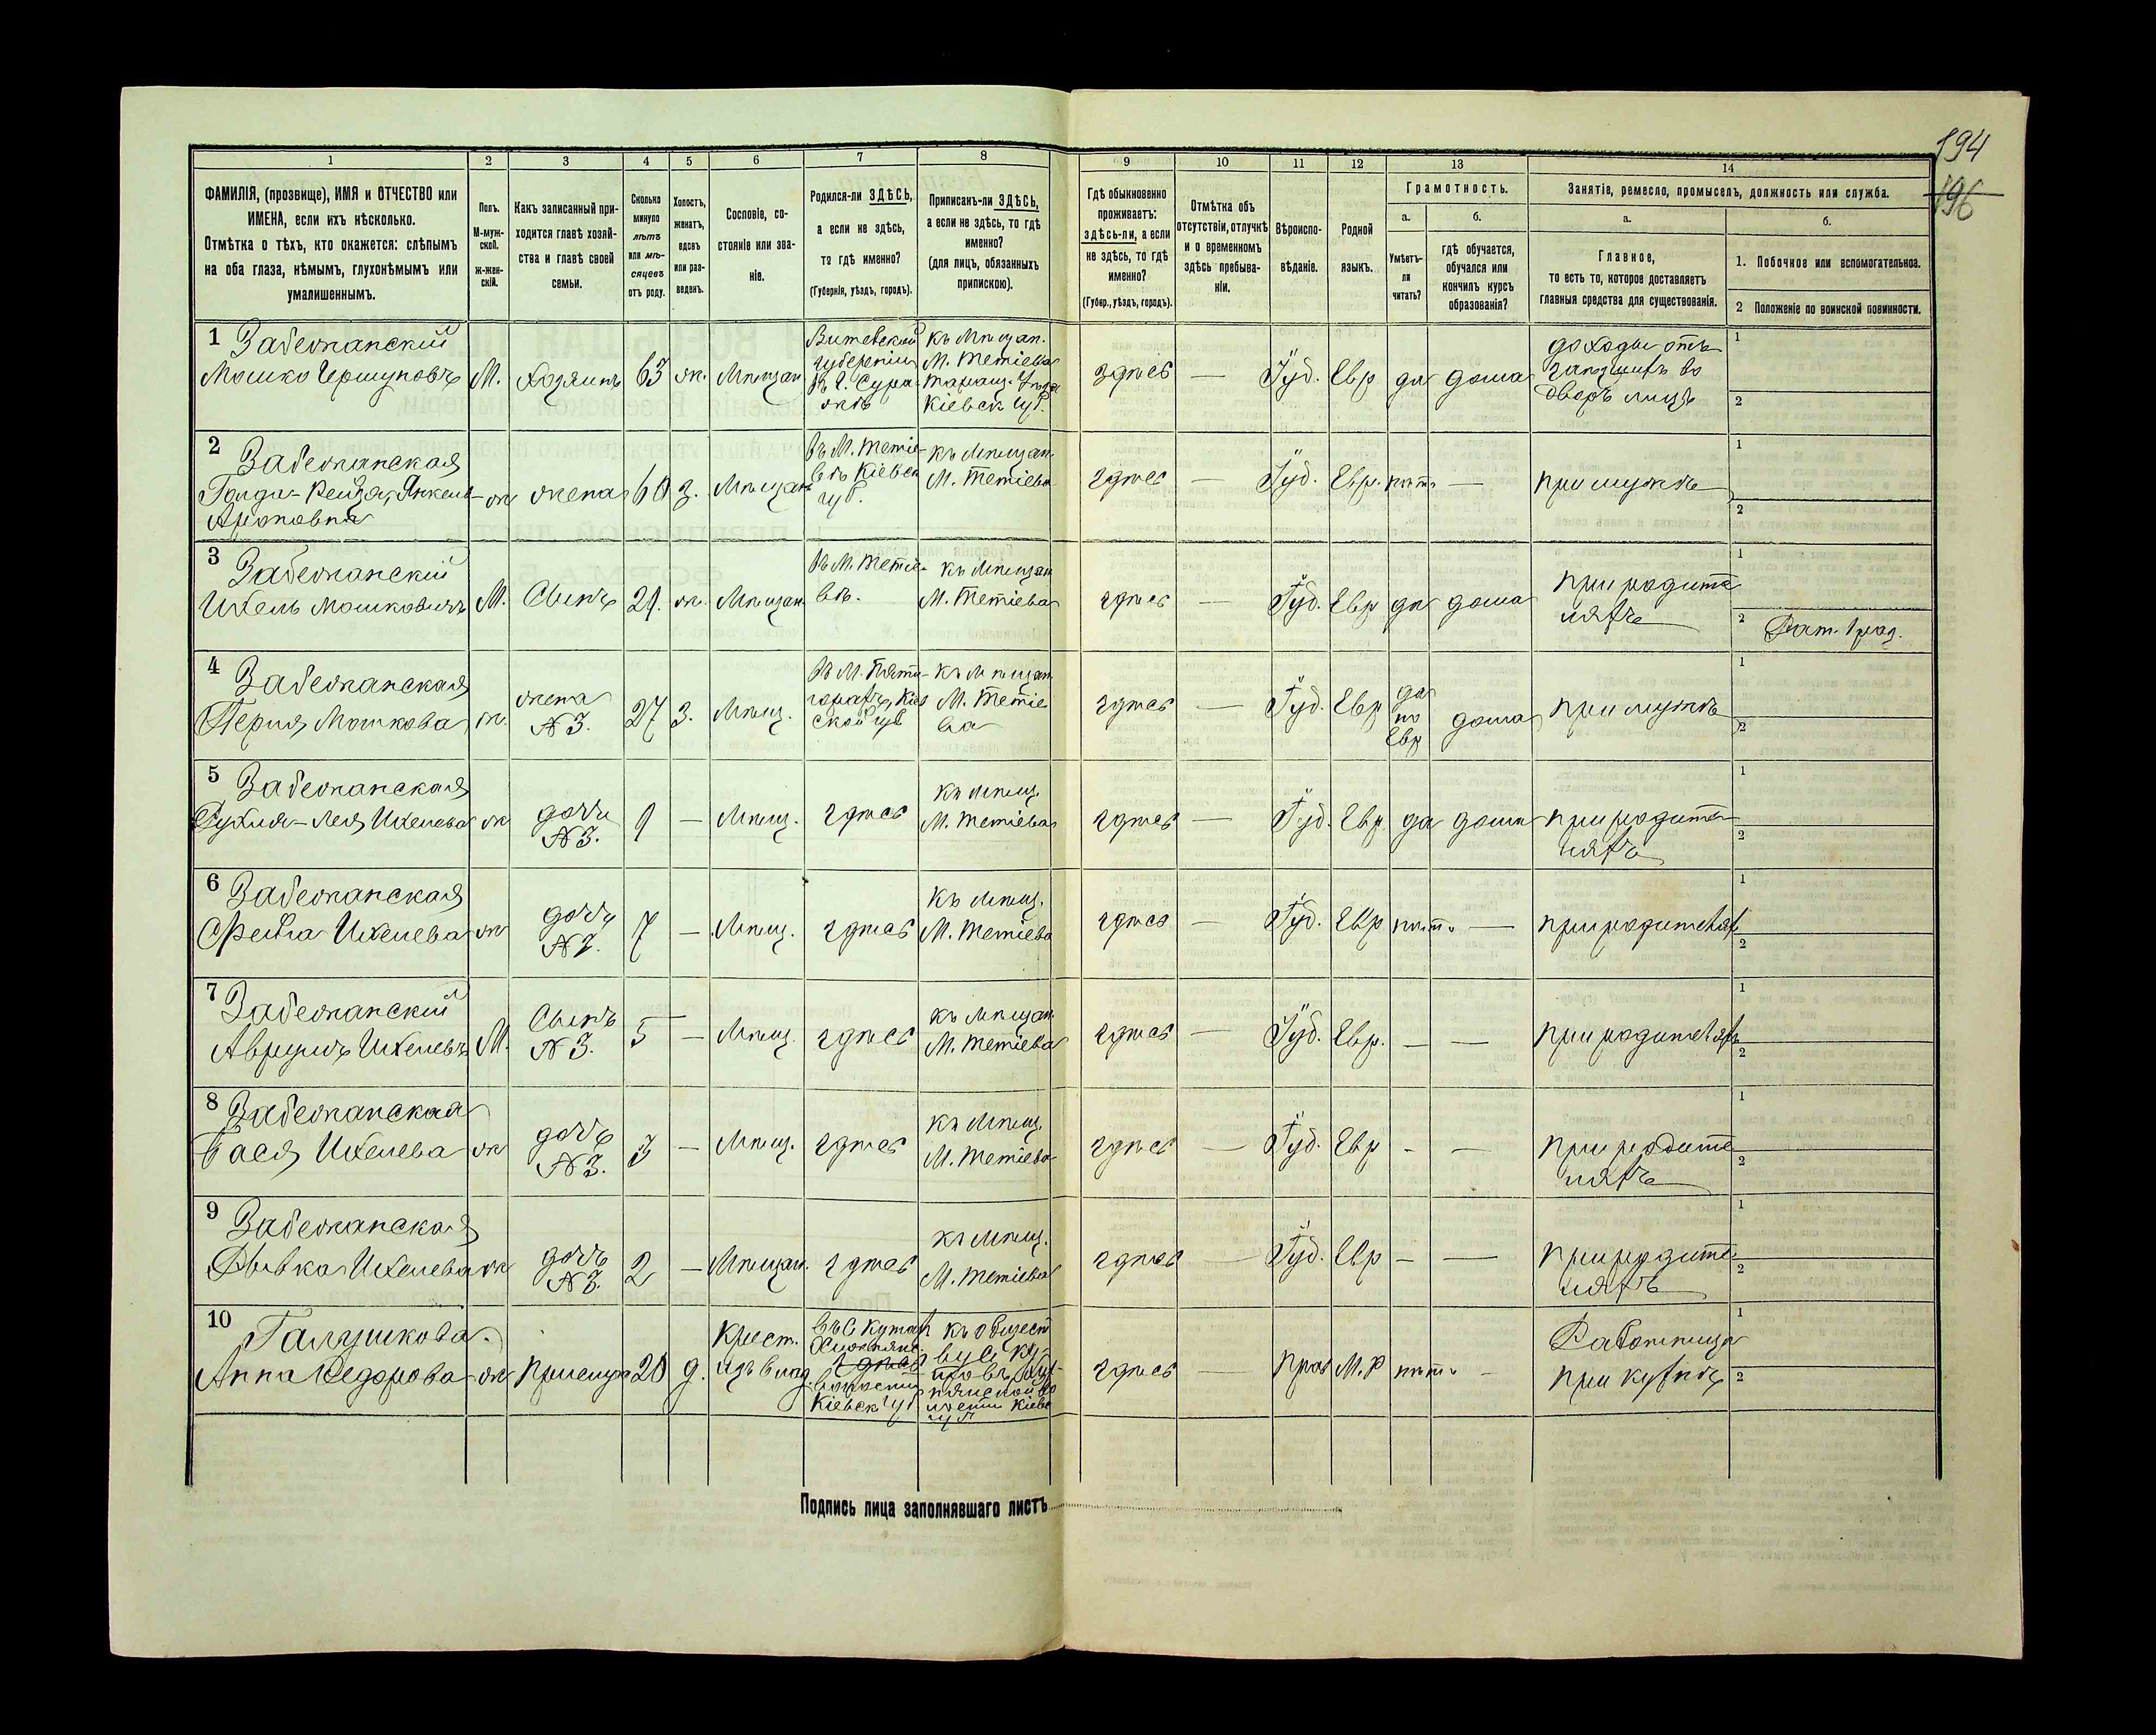 194
196
1 2 3 4 5 6 7 8 9 10 11 12 13 14
ФАМИЛІЯ, (прозвище), ИМЯ и ОТЧЕСТВО или
ИМЕНА, если ихъ нѣсколько.
Отмѣтка о тѣхъ, кто окажется: слѣпымъ
на оба глаза, нѣмымъ, глухонѣмымъ или
умалишеннымъ.
Полъ.
М-муж-
ской.
ж-жен-
скій.
Какъ записанный при-
ходится главѣ хозяй-
ства и главѣ своей
семьи.
Сколько
минуло
лѣтъ
или мѣ-
сяцевъ
отъ роду.
Холостъ,
женатъ,
вдовъ
или раз-
веденъ.
Сословіе, со-
стояніе или зва-
ніе.
Родился-ли ЗДѢСЬ,
а если не здѣсь,
то гдѣ именно?
(Губернія, уѣздъ, городъ).
Приписанъ-ли ЗДѢСЬ,
а если не здѣсь, то гдѣ
именно?
(для лицъ, обязанныхъ
припискою).
Гдѣ обыкновенно
проживаетъ:
здѣсь-ли, а если
не здѣсь, то гдѣ
именно?
(Губер., уѣздъ, городъ).
Отмѣтка объ
отсутствіи, отлучкѣ
и о временномъ
здѣсь пребыва-
ніи.
Вѣроиспо-
вѣданіе.
Родной
языкъ.
Грамотность.
а.
Умѣетъ-
ли
читать?
б.
гдѣ обучается,
обучался или
кончилъ курсъ
образованія?
Занятіе, ремесло, промыселъ, должность или служба.
а.
Главное,
то есть то, которое доставляетъ
главныя средства для существованія.
б.
1. Побочное или вспомогательное.
2 Положеніе по воинской повинности.
1 Забежанскій
Мошко Гершуновъ
М.
Хозяинъ
63
ж.
Мѣщан
Витебской
губерніи
въ г. Сура
жѣ
къ Мѣщан.
М. Тетіева
Таращ. Уѣзда
Кіевск губ.
здѣсь
—
Іуд.
Евр
да
дома
доходы отъ
во
дворѣ
1
2
2 Забежанская
Голда-Рейза, Янкель-
Ароновна
ж
жена
60
з.
Мѣщан
въ М. Тетіе-
вѣ Кіевск
губ.
къ мѣщан
М. Тетіева
здѣсь
—
Іуд.
Евр.
нѣтъ
—
при мужѣ
1
2
3 Забежанскій
Ихель Мошковичъ
М.
Сынъ
29.
ж.
Мѣщан.
въ М. Тетіе-
вѣ.
къ мѣщан
М. Тетіева
здѣсь
—
Іуд.
Евр
да
дома
при родите
ляхъ
1
2 Рат. 1 раз.
4 Забежанская
Перля Мошкова
ж.
жена
№ 3.
27
з.
Мѣщ.
въ М. Пяти-
горахъ, Кіев
ской губ
къ мѣщан
М. Тетіе
ва
здѣсь
—
Іуд.
Евр
да
по
Евр
дома
при мужѣ
1
2
5 Забежанская
Рухля-Лея Ихелева
ж
дочь
№ 3.
9
—
Мѣщ.
здѣсь
къ мѣщ.
М. Тетіева
здѣсь
—
Іуд.
Евр.
да
дома
при родите
ляхъ
1
2
6 Забежанская
Фейга Ихелева
ж
дочь
№ 3.
7
—
Мѣщ.
здѣсь
къ мѣщ.
М. Тетіева
здѣсь
—
Іуд.
Евр
нѣтъ
—
при родителях
1
2
7 Забежанскій
Аврумъ Ихелевъ
М.
Сынъ
№ 3.
5
—
Мѣщ.
здѣсь
къ мѣщан
М. Тетіева
здѣсь
—
Іуд.
Евр.
—
—
при родителяхъ
1
2
8 Забежанская
Бася Ихелева
ж
дочь
№ 3.
3
—
Мѣщ.
здѣсь
къ мѣщ.
М. Тетіева
здѣсь
—
Іуд.
Евр
-
-
при родите
ляхъ
1
2
9 Забежанская
Рывка Ихелева
ж
дочь
№ 3.
2
—
Мѣщан.
здѣсь
къ мѣщ.
М. Тетіева
здѣсь
—
Іуд.
Евр
-
—
при родите
ляхъ
1
2
10 Галушкова
Анна Федорова
ж
Прислуга
20
д.
Крест.
изъ влад.
въ с Кутах
здѣсь
волости
Кіевск губ
къ общест
ву с. Ку-
Кіевс
губ
здѣсь
—
Прав
М. Р
нѣтъ
-
Работница
при кухнѣ
1
2
Подпись лица заполнявшаго листъ